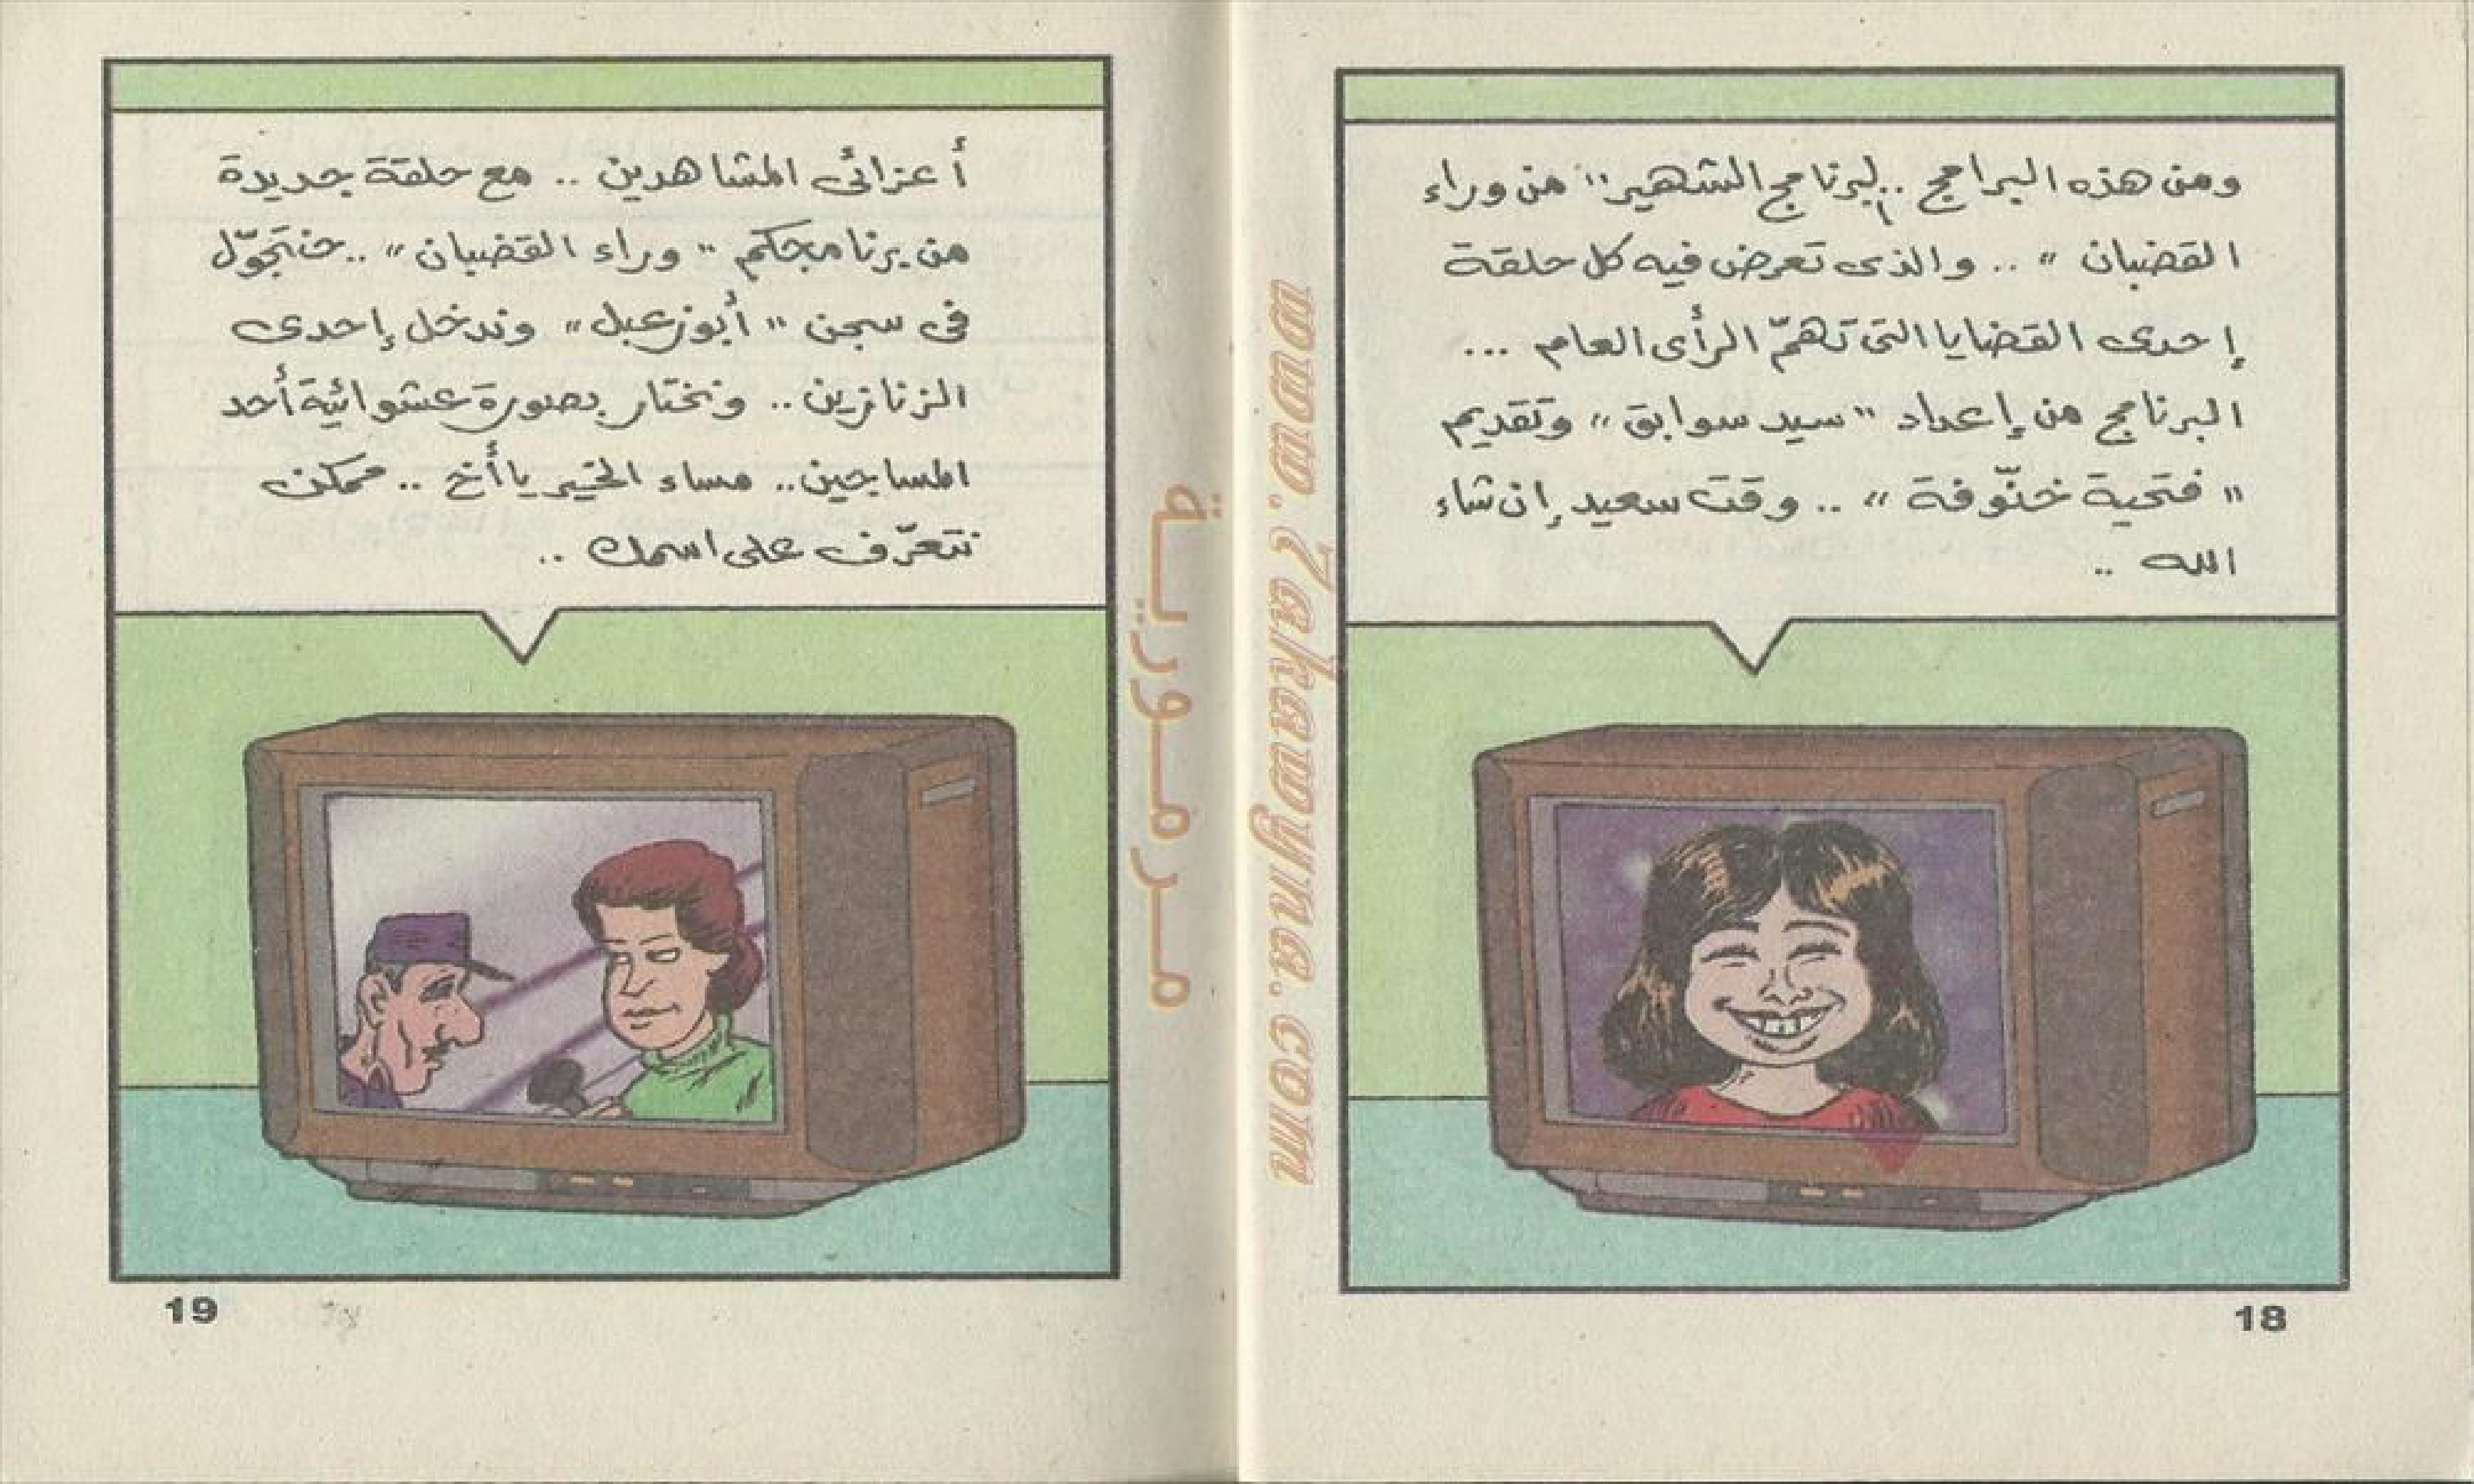 ومن هذه البرامج .. البرنامج الشهير " من وراء
القضبان " .. والذى تعرض فيه كل حلقة
إحدى القضايا التى تهمّ الرأى العام ...
البرنامج من إعداد " سيد سوابق " وتقديم
" فتحية خنّوفة " .. وقت سعيد إن شاء
الله ..
18
أعزائى المشاهدين .. مع حلقة جديدة
من برنامجكم " وراء القضبان " .. حنتجوّل
فى سجن " أبو زعبل " وندخل إحدى
الزنازين .. ونختار بصورة عشوائية أحد
المساجين .. مساء الخير يا أخ .. ممكن
نتعرّف على اسمك ..
19
مرمورية
www.7akawyna.com